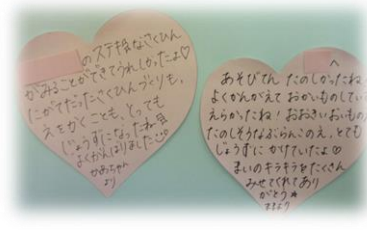 のステキなさくひん
がみることができてうれしかったよ♡
にがてだったさくひんづくりも、
えをかくことも、とっても
じょうずになったね
よくがんばりました
かあちゃん
より
へ
あそびてん たのしかったね
よくかんがえて おかいものしていて
えらかったね! おおきいおいもの
たのしそうなぶらんこのえ、とても
じょうずに かけていたよ♡
まいのキラキラをたくさん
みせてくれてあり
がとう
より